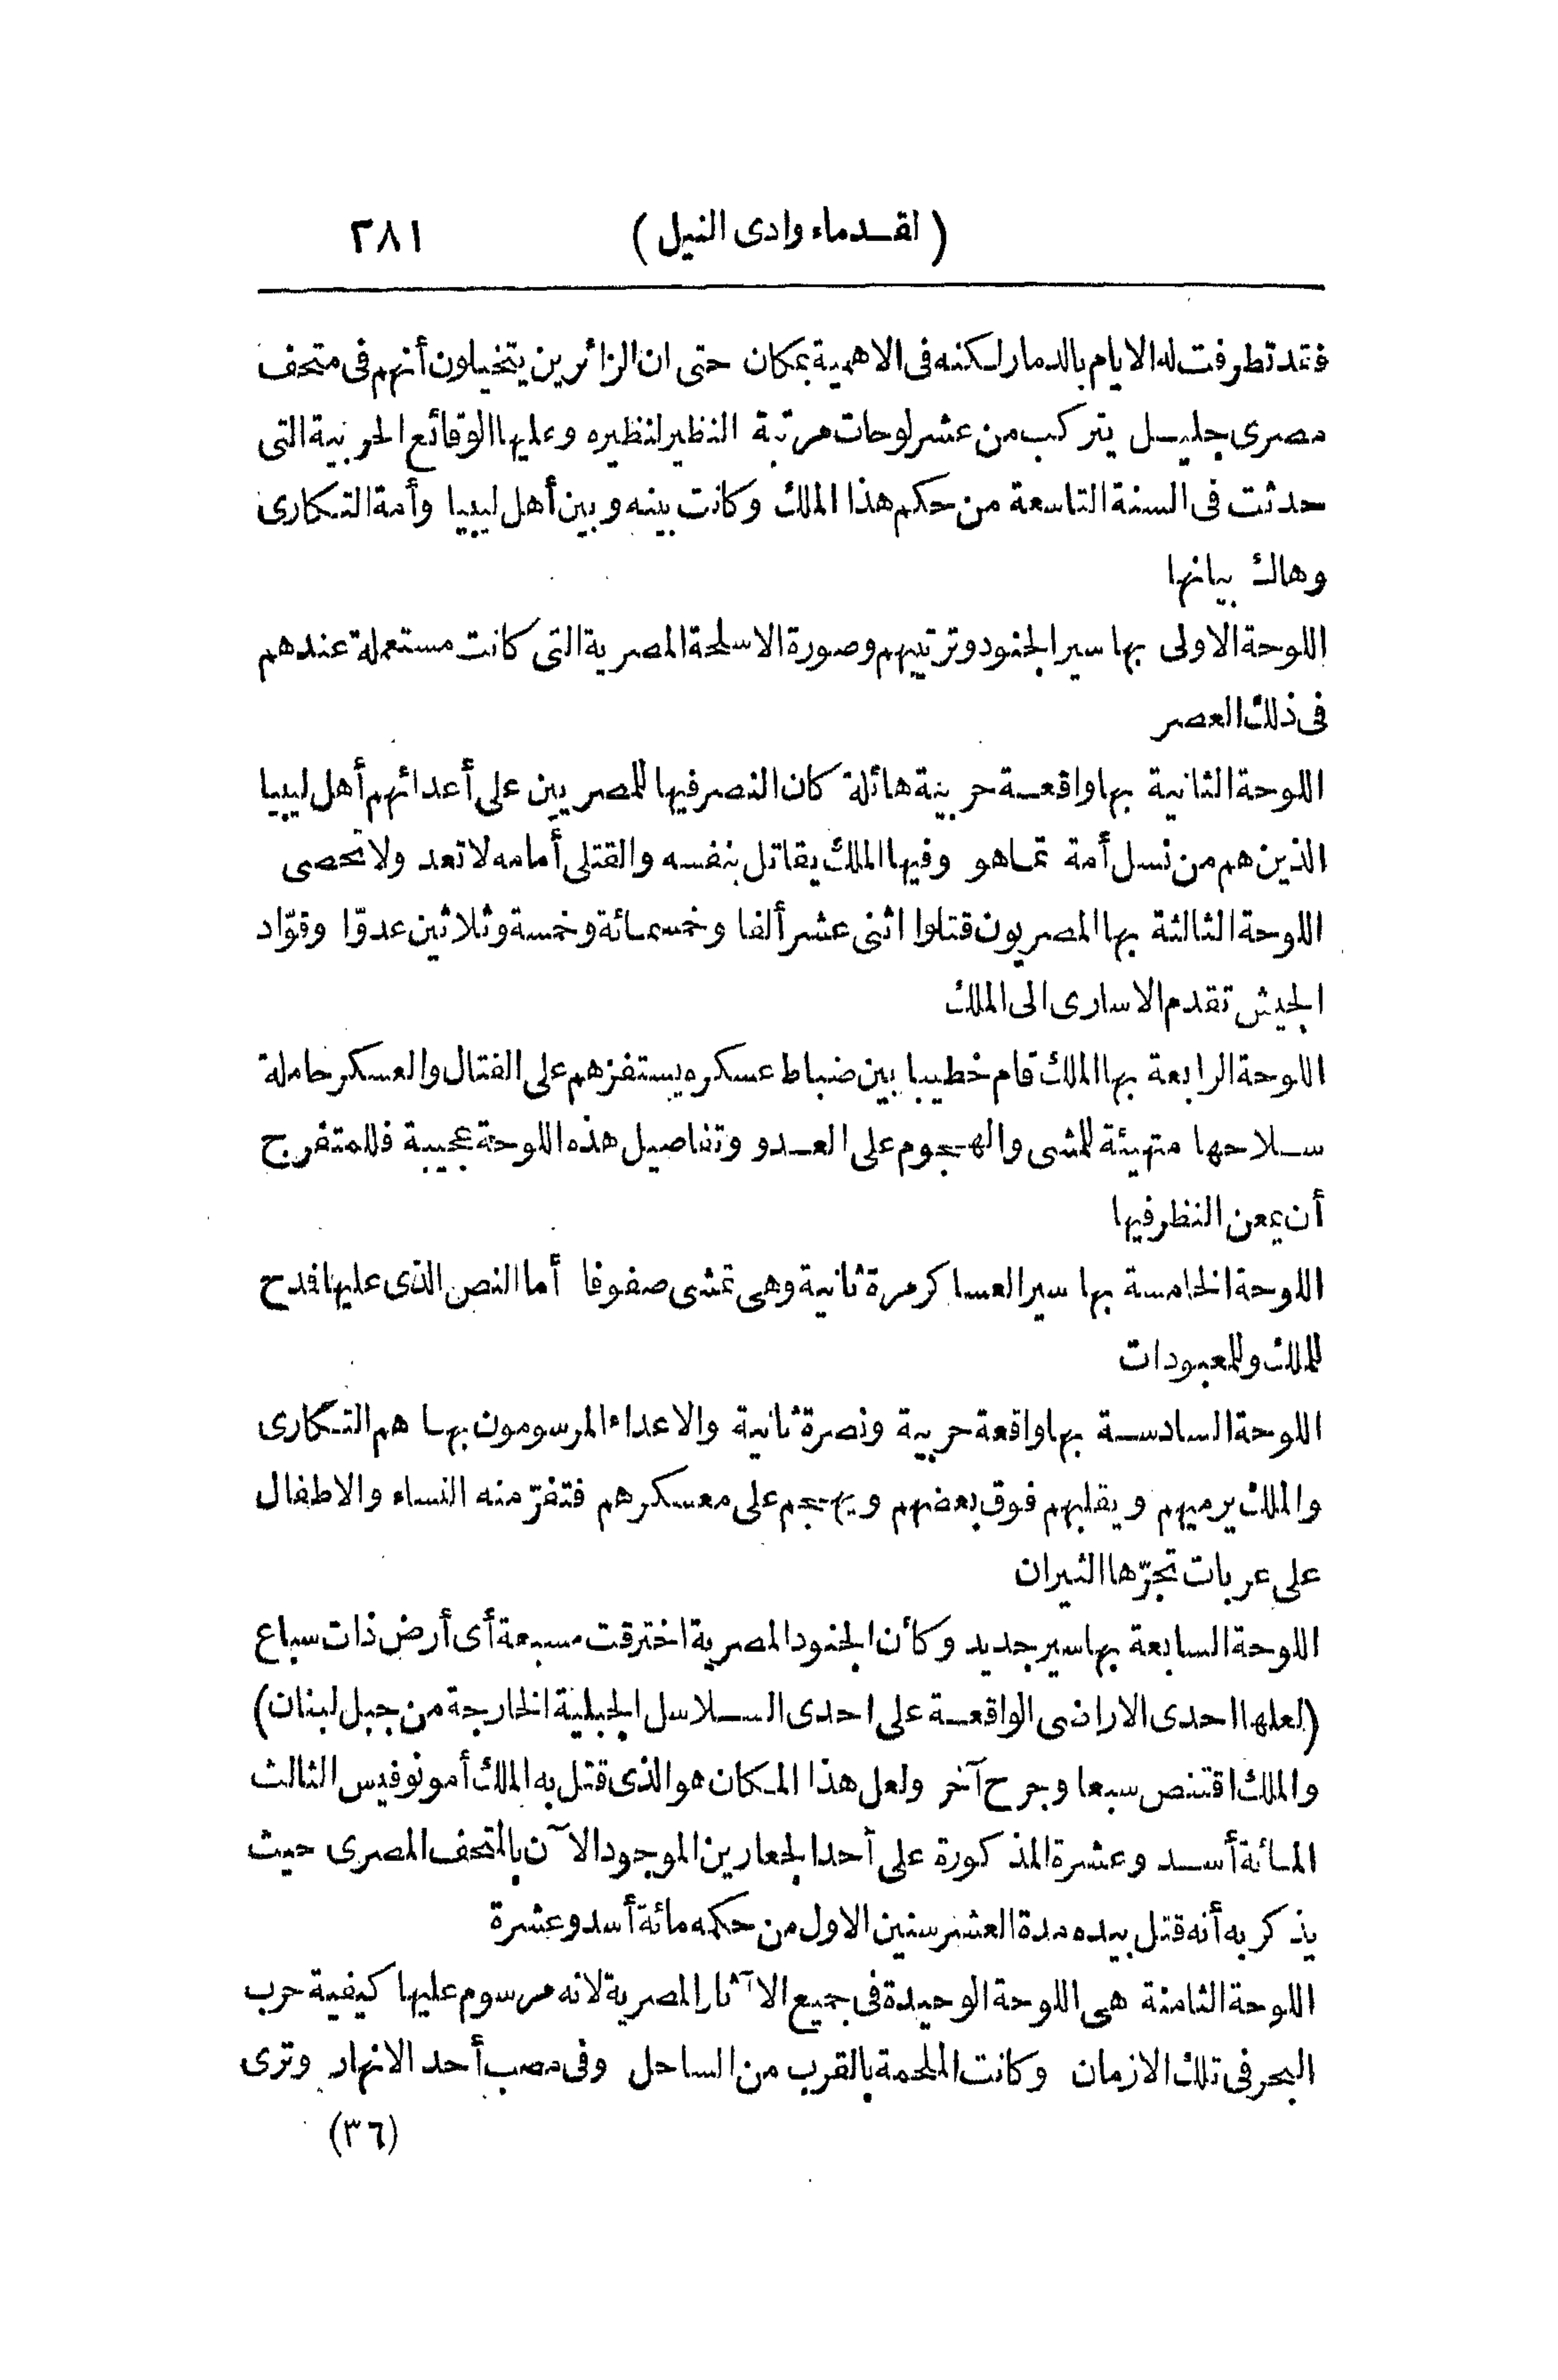 ( لقدماء وادى النيل ) ٢٨١
فقد تطرفت له الايام بالدمار لكنه فى الاهمية بمكان حتى ان الزائرين يتخيلون أنهم فى متحف
مصرى جليل يتركب من عشر لوحات مرتبة النظير لنظيره وعليها الوقائع الحربية التى
حدثت فى السنة التاسعة من حكم هذا الملك وكانت بينه وبين أهل ليبيا وأمة التكارى
وهاك بيانها
اللوحة الاولى بها سير الجنود وترتيبهم وصورة الاسلحة المصرية التى كانت مستعملة عندهم
فى ذلك العصر
اللوحة الثانية بها واقعة حربية هائلة كان النصر فيها للمصريين على أعدائهم أهل ليبيا
الذين هم من نسل أمة تماهو وفيها الملك يقاتل بنفسه والقتلى أمامه لا تعد ولا تحصى
اللوحة الثالثة بها المصريون قتلوا اثنى عشر ألفا وخسمائة وخمسة وثلاثين عدوّا وقوّاد
الجيش تقدم الاسارى الى الملك
اللوحة الرابعة بها الملك قام خطيبا بين ضباط عسكره يستفزهم على القتال والعسكر حاملة
سلاحها متهيئة للمشى والهجوم على العدو وتفاصيل هذه اللوحة عجيبة فللمتفرج
أن يمعن النظر فيها
اللوحة الخامسة بها سير العساكر مرة ثانية وهى تمشى صفوفا أما النص الذى عليها فدح
للملك وللمعبودات
اللوحة السادسة بها واقعة حربية ونصرة ثانية والاعداء المرسومون بها هم التكارى
والملك يرميهم ويقلبهم فوق بعضهم ويهجم على معسكرهم فتفرّ منه النساء والاطفال
على عربات تجرّها الثيران
اللوحة السابعة بها سير جديد وكأن الجنود المصرية اخترقت مسبعة أى أرض ذات سباع
(لعلها احدى الاراضى الواقعة على احدى السلاسل الجبلية الخارجة من جبل لبنان)
والملك اقتنص سبعا وجرح آخر ولعل هذا المكان هو الذى قتل به الملك أمونوفيس الثالث
المائة أسد وعشرة المذكورة على أحد الجعارين الموجود الآن بالمتحف المصرى حيث
يذكر به أنه قتل بيده مدة العشر سنين الاول من حكمه مائة أسد وعشرة
اللوحة الثامنة هى اللوحة الوحيدة فى جميع الآثار المصرية لانه مرسوم عليها كيفية حرب
البحر فى تلك الازمان وكانت الملحمة بالقرب من الساحل وفى مصب أحد الانهار وترى
(٣٦)